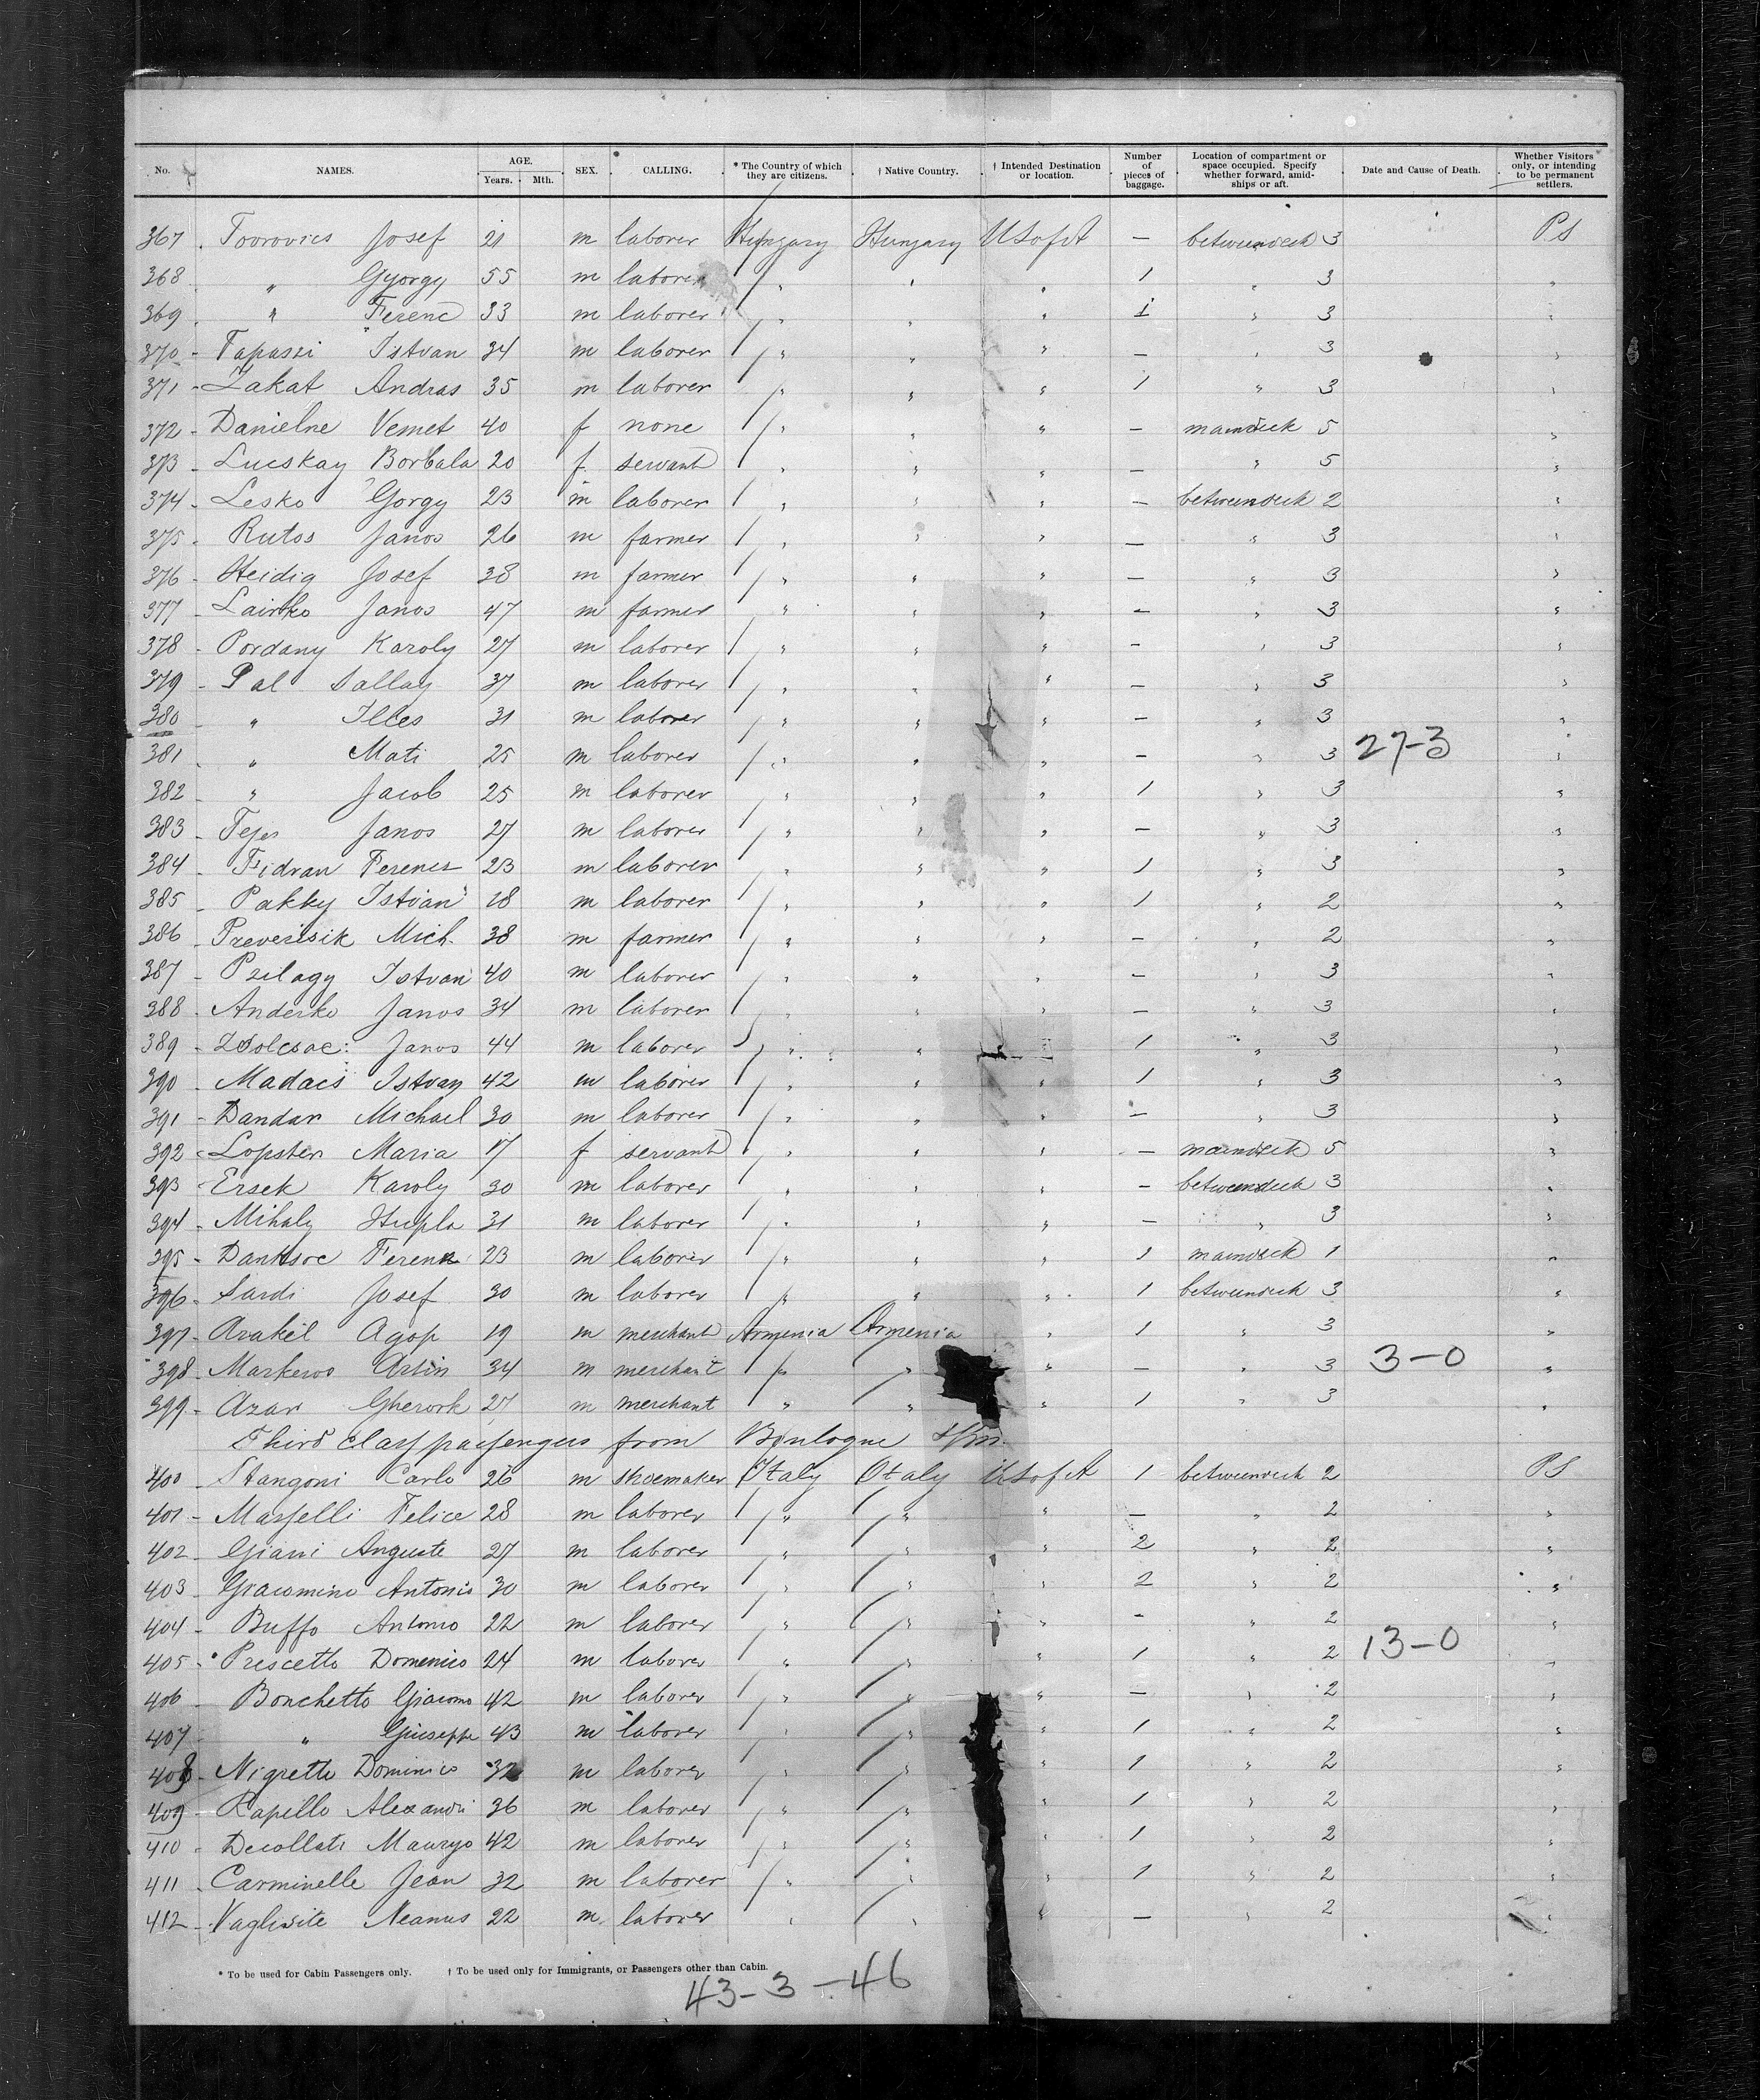 No. NAMES. AGE. Years. Mth. SEX. CALLING. * The Country of which they are citizens. † Native Country. † Intended Destination or location. Number of pieces of baggage. Location of compartment or space occupied. Specify whether forward, amidships or aft. Date and Cause of Death. Whether Visitors only, or intending to be permanent settlers.
367 Tovrovics Josef 21 m laborer Hungary Hungary U S of A — betweendeck 3 PS
368 " Gyorgy 55 m laborer " " " 1 " 3 "
369 " Ferenc 33 m laborer " " " 1 " 3 "
370 - Tapassi Istvan 34 m laborer " " " — " 3 "
371 - Zakat Andras 35 m laborer " " " 1 " 3 "
372 - Danielne Vemet 40 f none " " " — maindeck 5 "
373 - Lucskay Borbala 20 f servant " " " — " 5 "
374 - Lesko Gorgy 23 m laborer " " " — betweendeck 2 "
375 - Rutos Janos 26 m farmer " " " — " 3 "
376 - Heidig Josef 38 m farmer " " " — " 3 "
377 - Lairko Janos 47 m farmer " " " — " 3 "
378 - Pordany Karoly 27 m laborer " " " — " 3 "
379 - Pal Sallay 37 m laborer " " " — " 3 "
380 - " Illes 31 m laborer " " " — " 3 "
381 - " Mati 25 m laborer " " " — " 3 27-3 "
382 - " Jacob 25 m laborer " " " 1 " 3 "
383 - Tejes Janos 27 m laborer " " " — " 3 "
384 - Fidran Ferencz 23 m laborer " " " 1 " 3 "
385 - Pakky Istvan 18 m laborer " " " 1 " 2 "
386 - Preverisik Mich. 38 m farmer " " " — " 2 "
387 - Pzilagy Istvan 40 m laborer " " " — " 3 "
388 - Anderko Janos 34 m laborer " " " — " 3 "
389 - Janos 44 m laborer " " " 1 " 3 "
390 - Madacs Istvan 42 m laborer " " " 1 " 3 "
391 - Dandar Michael 30 m laborer " " " — " 3 "
392 - Lopster Maria 17 f servant " " " — maindeck 5 "
393 - Ersek Karoly 30 m laborer " " " — betweendeck 3 "
394 - Mihaly Hupla 31 m laborer " " " — " 3 "
395 - Danksoc Ferenz 23 m laborer " " " 1 maindeck 1 "
396 - Sardi Josef 30 m laborer " " " 1 betweendeck 3 "
397 - Arakel Agop 19 m merchant Armenia Armenia " 1 " 3 "
398 - Markeros Artin 34 m merchant " " " — " 3 3-0 "
399 - Azar Ghevork 27 m merchant " " " 1 " 3 "
Third class passengers from Boulogne s/m.
400 - Stangoni Carlo 26 m shoemaker Italy Italy U S of A 1 betweendeck 2 PS
401 - Masselli Felice 28 m laborer " " " — " 2 "
402 - Giani Auguste 27 m laborer " " " 2 " 2 "
403 - Giacomino Antonio 30 m laborer " " " 2 " 2 "
404 - Buffo Antonio 22 m laborer " " " — " 2 "
405 - Prescetto Domenico 24 m laborer " " " 1 " 2 13-0 "
406 - Bonchetto Giacomo 42 m laborer " " " — " 2 "
407 " Giuseppe 43 m laborer " " " 1 " 2 "
408 - Nigretto Dominico 32 m laborer " " " 1 " 2 "
409 - Rapello Alexandri 36 m laborer " " " 1 " 2 "
410 - Decollati Mauryo 42 m laborer " " " 1 " 2 "
411 - Carminelle Jean 32 m laborer " " " 1 " 2 "
412 - Vaglisite Neanus 22 m laborer " " " — " 2 "
* To be used for Cabin Passengers only. † To be used only for Immigrants, or Passengers other than Cabin.
43-3-46